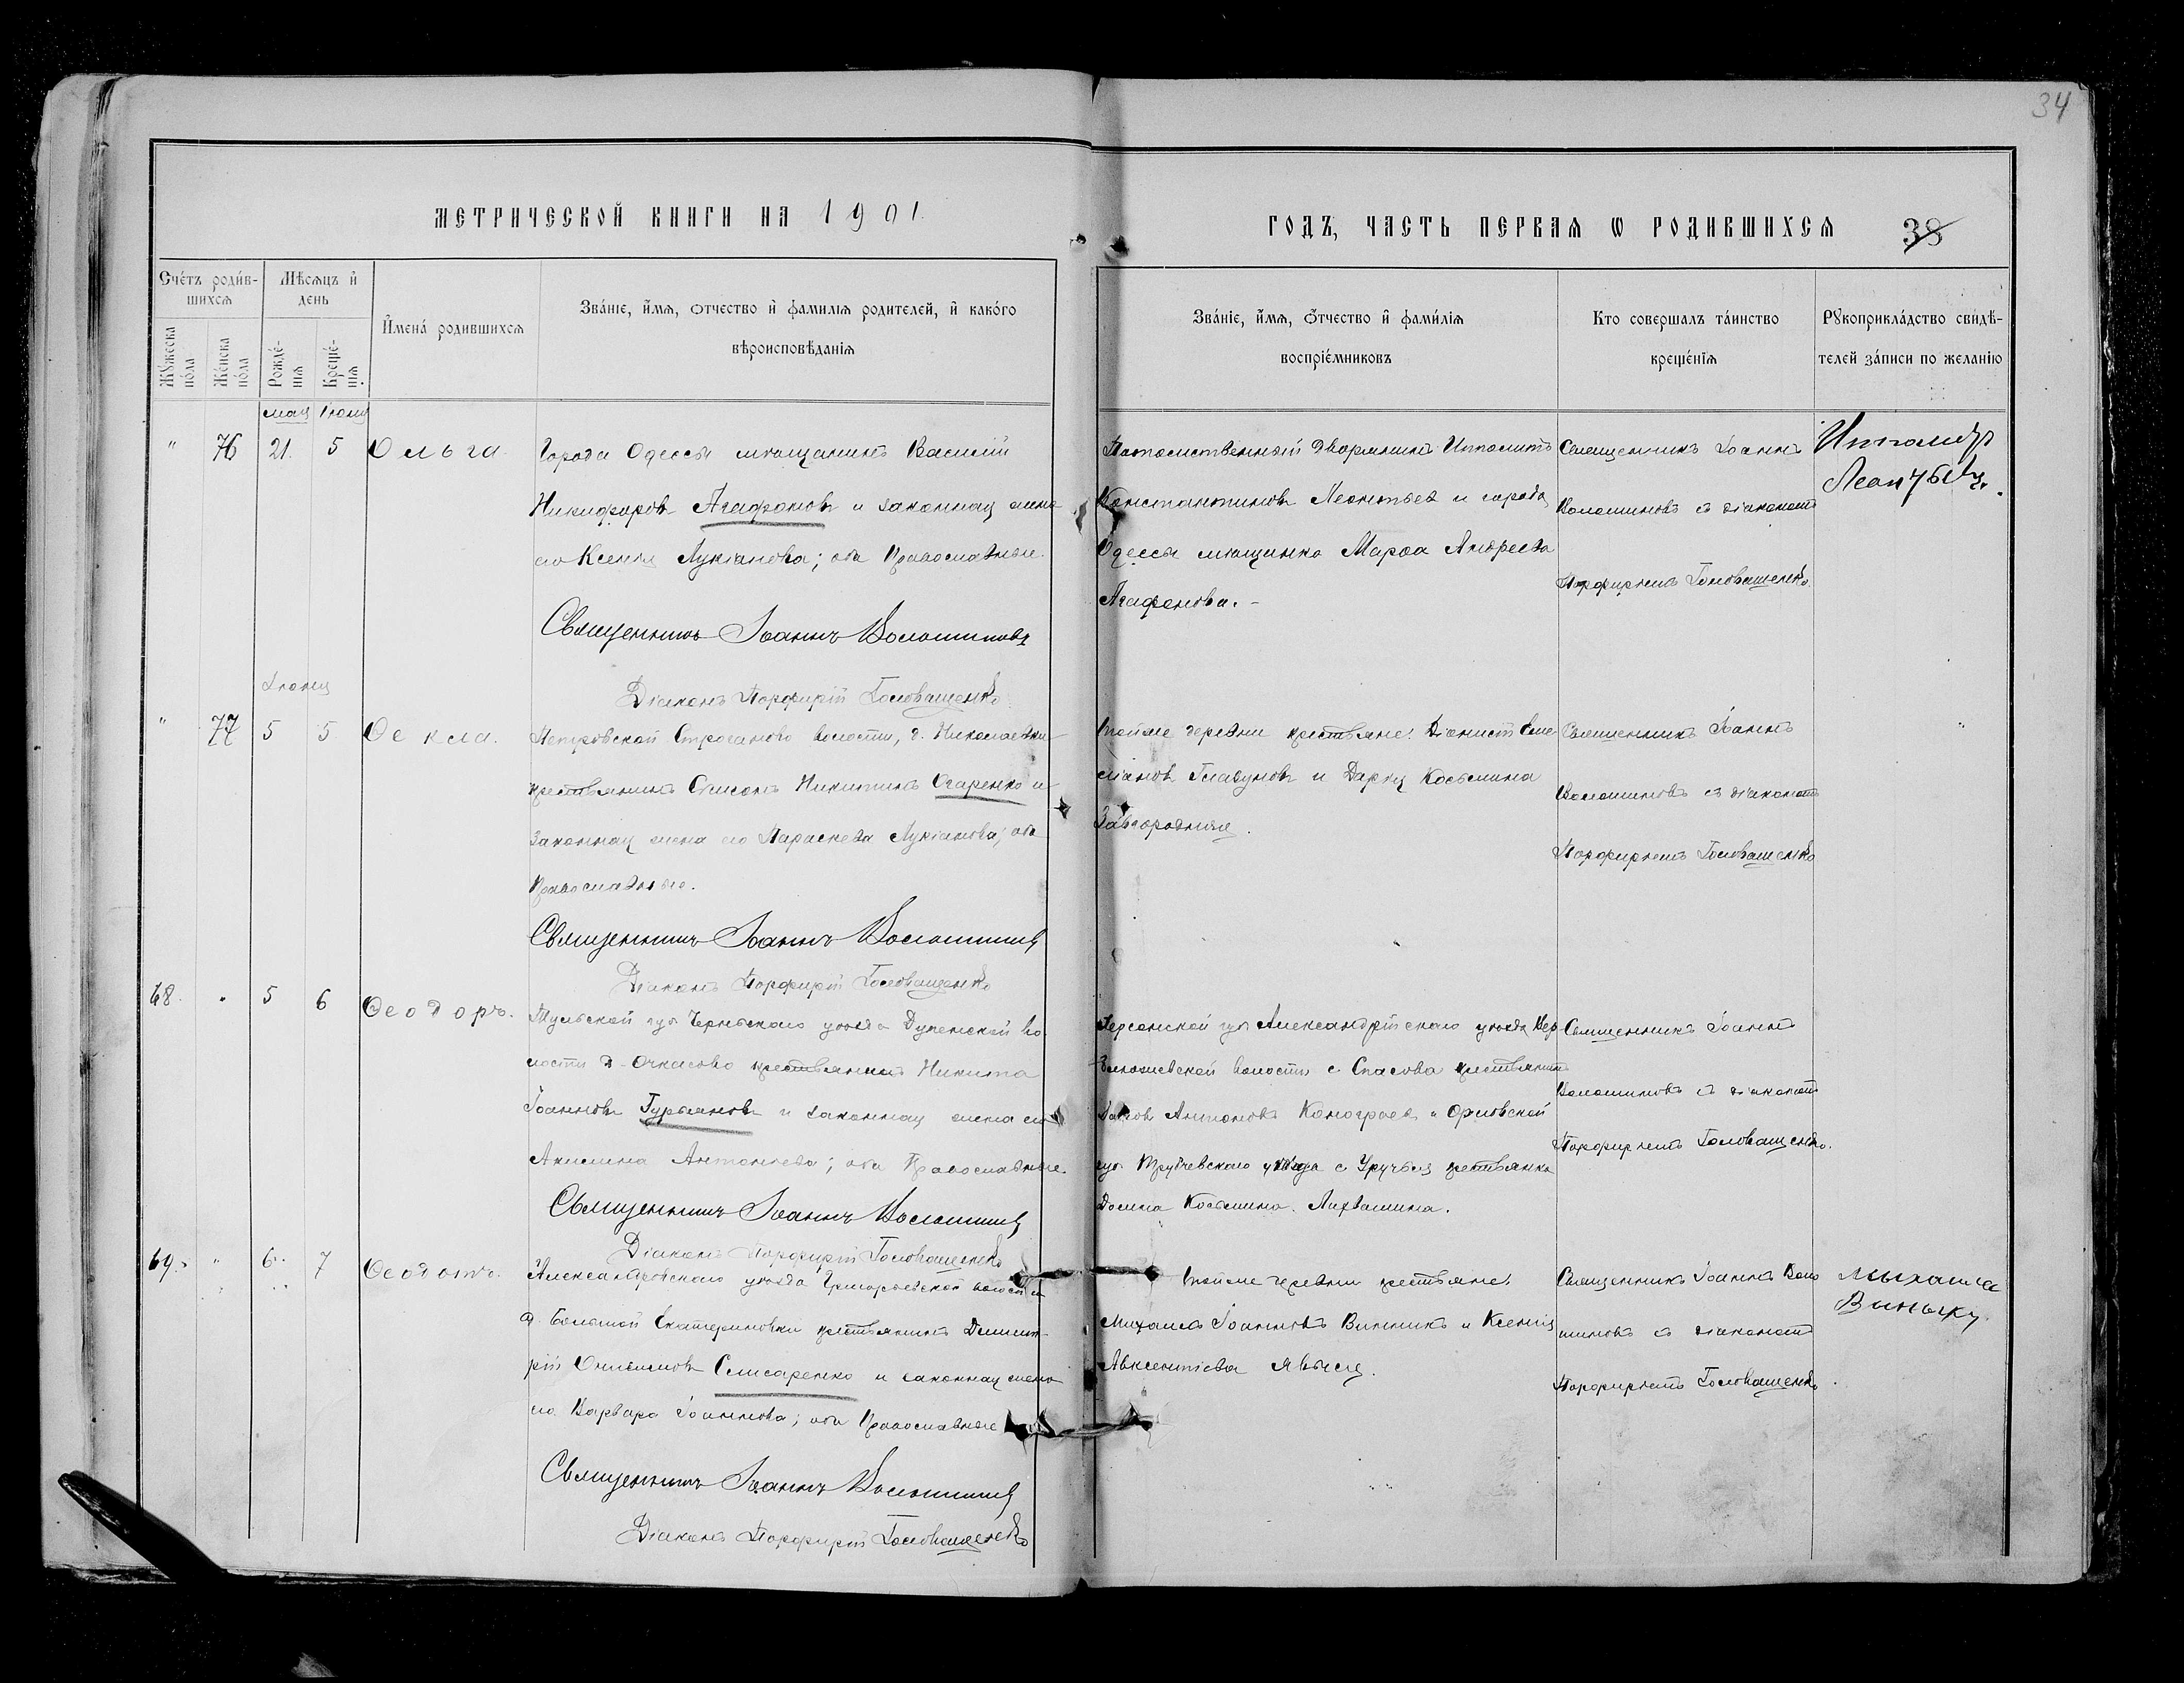 34
МЕТРИЧЕСКОЙ КНИГИ НА 1901
ГОДЪ, ЧАСТЬ ПЕРВАЯ Ѡ РОДИВШИХСЯ 38
Счётъ роди́в-
шихся
Мѣсяцъ и҆
день
Мꙋжеска
по́ла
Же́нска
по́ла
Рожде́-
нїя
Креще́-
нїя
И҆мена́ родившихся
Зва́нїе, и҆́мя, ѻтчество и҆ фамилїя родителей, и҆ како́го
вѣроисповѣданїя
Зва́нїе, и҆́мя, ѻ҆́тчество и҆ фами́лїя
воспрїе́мниковъ
Кто совершалъ та́инство
креще́нїя
Рꙋкоприкла́дство свидѣ-
телей за́писи по жела́нїю
мая Іюня
" 76 21. 5 Ольга.
Города Одессы мѣщанинъ Василій
Никифоровъ Агафоновъ и законная жена
его Ксенія Лукіанова; оба Православные.
Священникъ Іоаннъ Волошиновъ
Діаконъ Порфирій Головащенко
Потомственный дворянинъ Иполитъ
Константиновъ Леонтьевъ и города
Одессы мѣщанка Марѳа Андреева
Агафонова. -
Священникъ Іоаннъ
Волошиновъ съ діакономъ
Порфиріемъ Головащенко.
Іюня
" 77 5 5 Ѳекла.
Петровской Строганово волости, д. Николаевки
крестьянинъ Симонъ Никитинъ Огаренко и
законная жена его Параскева Лукіанова; оба
Православные.
Священникъ Іоаннъ Волошиновъ
Діаконъ Порфирій Головащенко
тойже деревни крестьяне: Діонисій
Гладуновъ и Дарія Косьмина
Завгородняя.
Священникъ Іоаннъ
Волошиновъ съ діакономъ
Порфиріемъ Головащенко
"
68. " 5 6 Ѳеодоръ.
Тульской губ Чернскаго уѣзда во-
лости д. Очкасово крестьянинъ Никита
Іоанновъ Гурьяновъ и законная жена его
Акилина Антоніева; оба Православные.
Священникъ Іоаннъ Волошиновъ
Діаконъ Порфирій Головащенко
Херсонской губ Александрійскаго уѣзда
волости с Спасова крестьянинъ
Антоновъ и Орловской
губ Трубчевскаго уѣзда с Уручья крестьянка
Домна Косьмина.
Священникъ Іоаннъ
Волошиновъ съ діакономъ
Порфиріемъ Головащенко.
69. " 6. 7 Ѳеодотъ.
Александровскаго уѣзда Григорьевской волости
д. Большой Екатериновки крестьянинъ Димит-
рій Слисаренко и законная жена
его Варвара Іоаннова; оба Православные
Священникъ Іоаннъ Волошиновъ
Діаконъ Порфирій Головащенко
тойже деревни крестьяне:
Михаилъ Іоанновъ Винникъ и Ксенія
Авксентіева
Священникъ Іоаннъ Воло
шиновъ съ діакономъ
Порфиріемъ Головащенко.